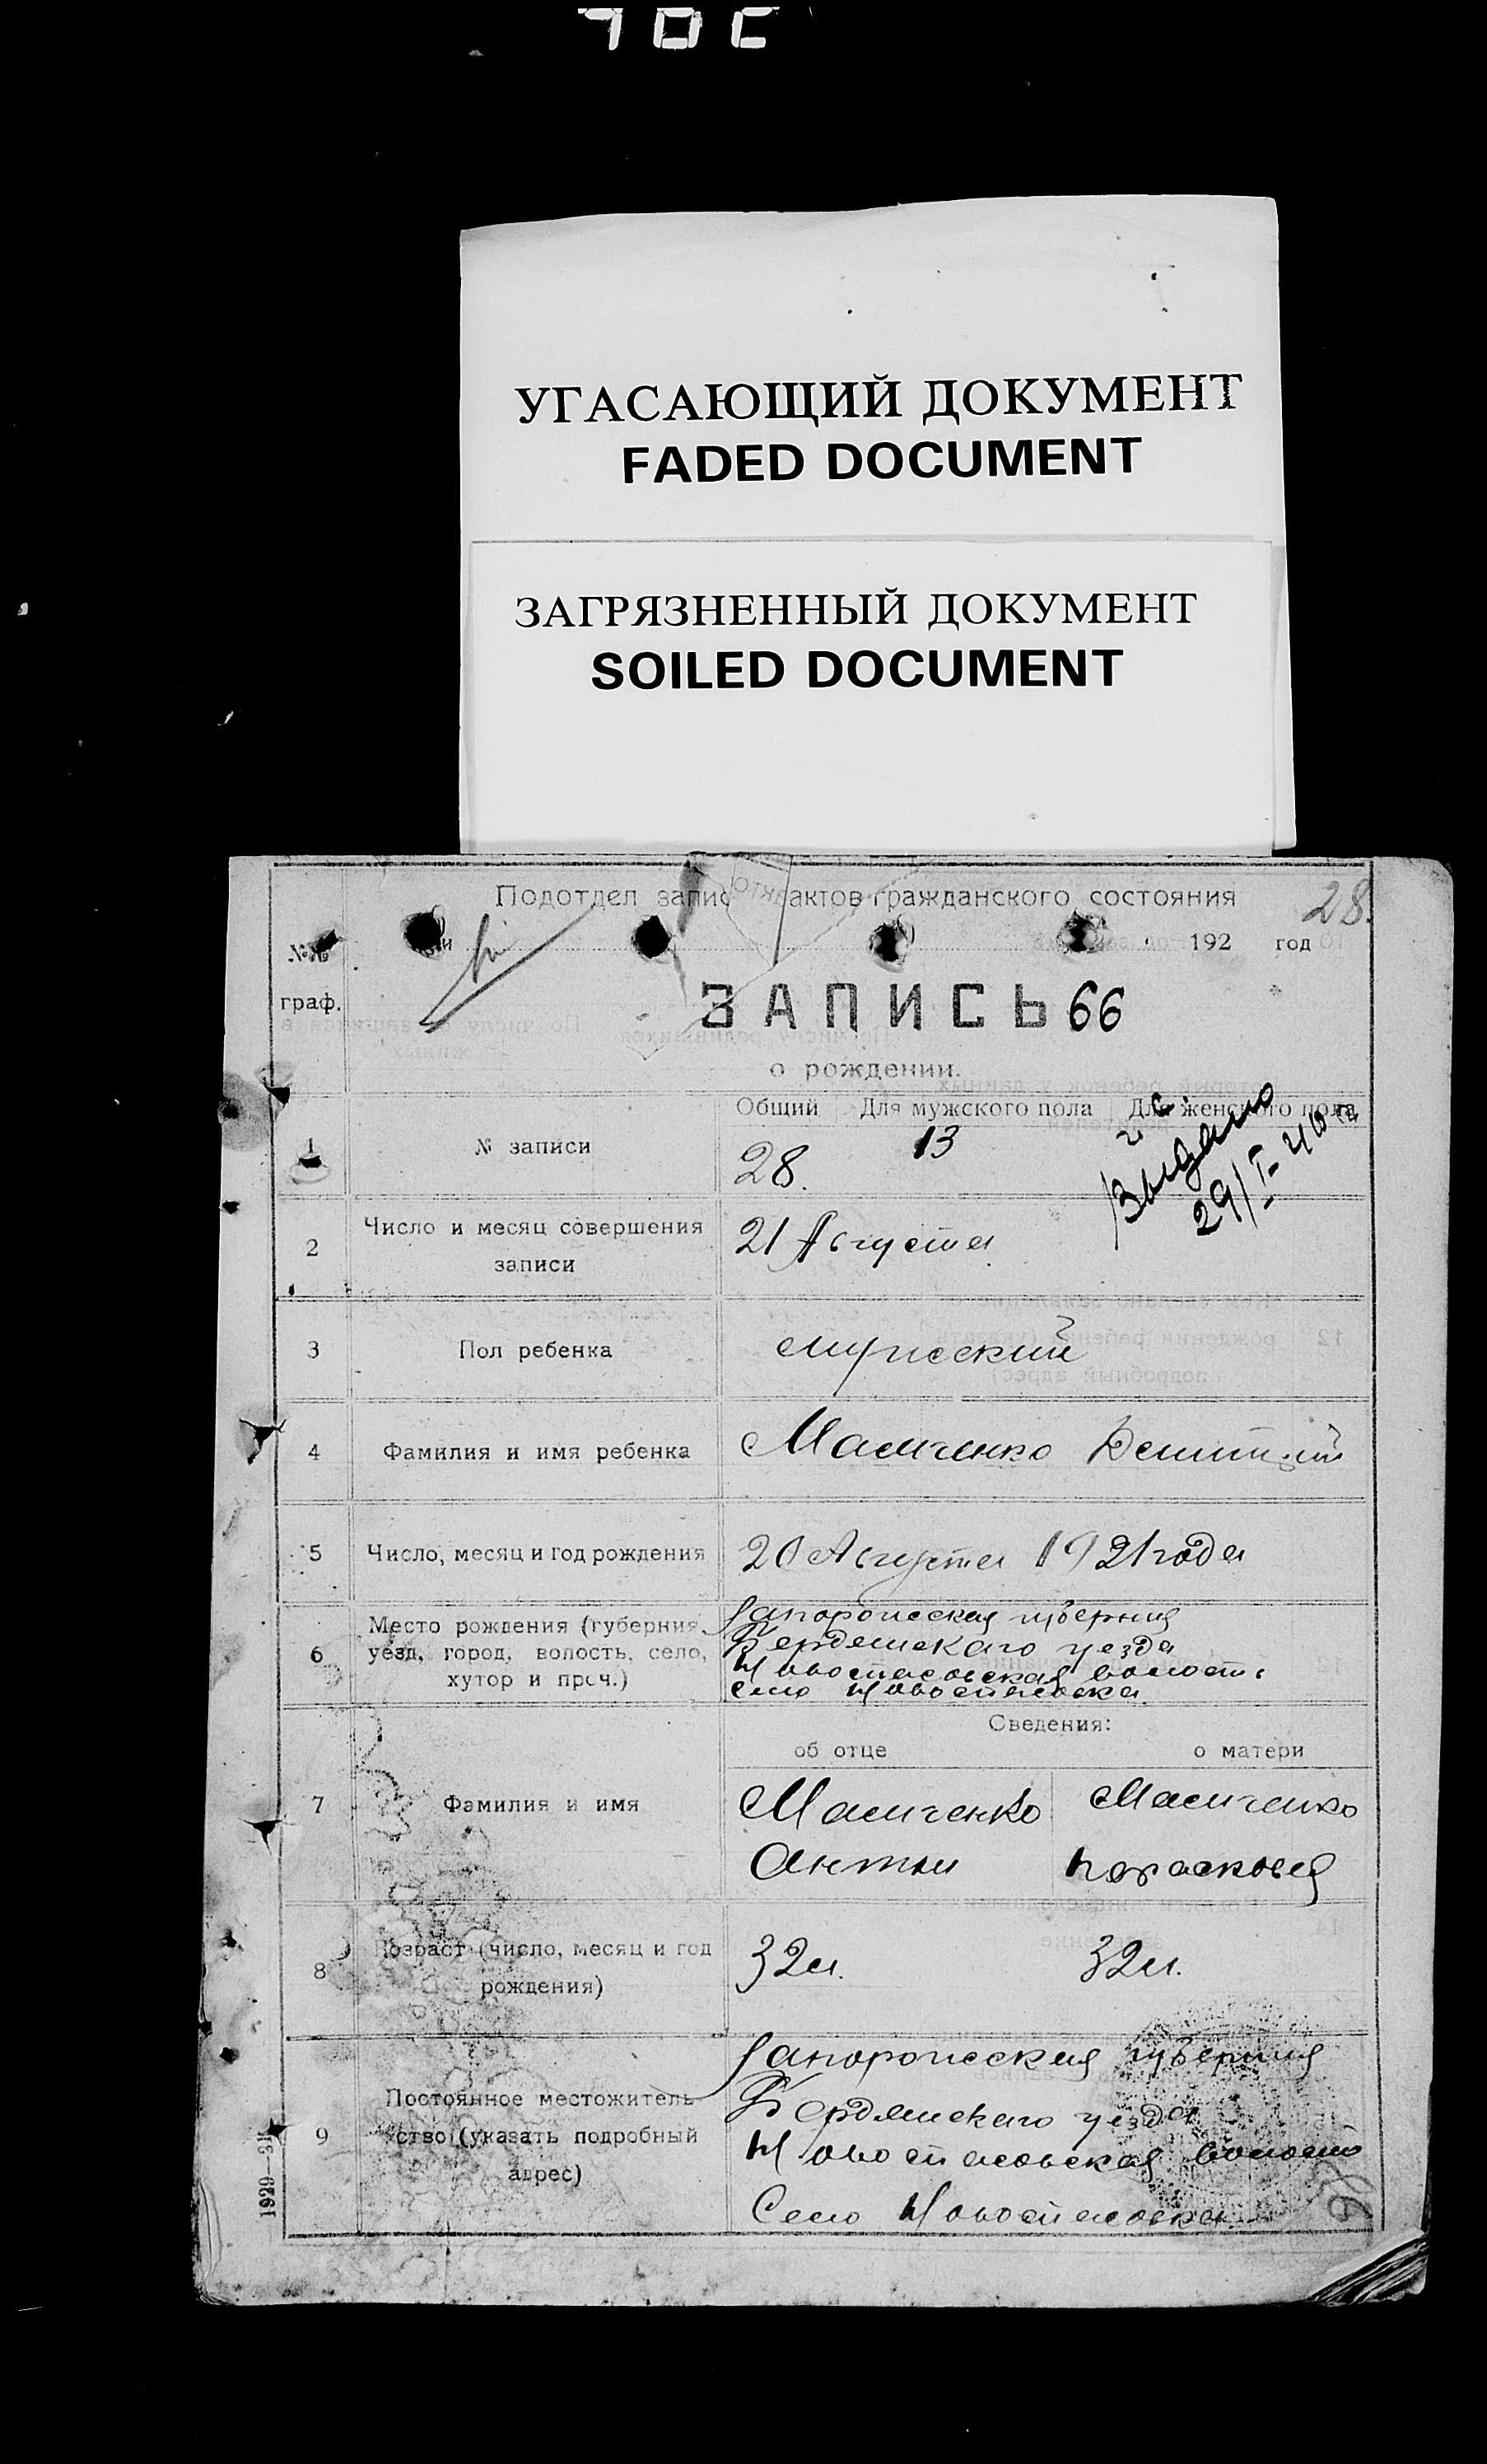 УГАСАЮЩИЙ ДОКУМЕНТ
FADED DOCUMENT
ЗАГРЯЗНЕННЫЙ ДОКУМЕНТ
SOILED DOCUMENT
28.
Подотдел запис актов гражданского состояния
192 год
№№
граф.
ЗАПИСЬ 66
о рождении.
Общий Для мужского пола Для женского пола
1 № записи 28. 13
Выдано
29/I-40 г.
2 Число и месяц совершения
записи
21 Августа
3 Пол ребенка мужеский
4 Фамилия и имя ребенка Мамченко Демитрий
5 Число, месяц и год рождения 20 Августа 1921 года
6 Место рождения (губерния,
уезд, город, волость, село,
хутор и проч.)
Запорожская губерния
Бердянскаго уезда
Новоспасовская волость
село Новоспасовка
Сведения:
об отце о матери
7 Фамилия и имя
Мамченко Мамченко
Антон Парасковея
8 Возраст (число, месяц и год
рождения)
32 л. 32 л.
9 Постоянное местожитель-
ство (указать подробный
адрес)
Запорожская губерния
Бердянскаго уезда
Новоспасовская волость
Село Новоспасовка.
1929—31